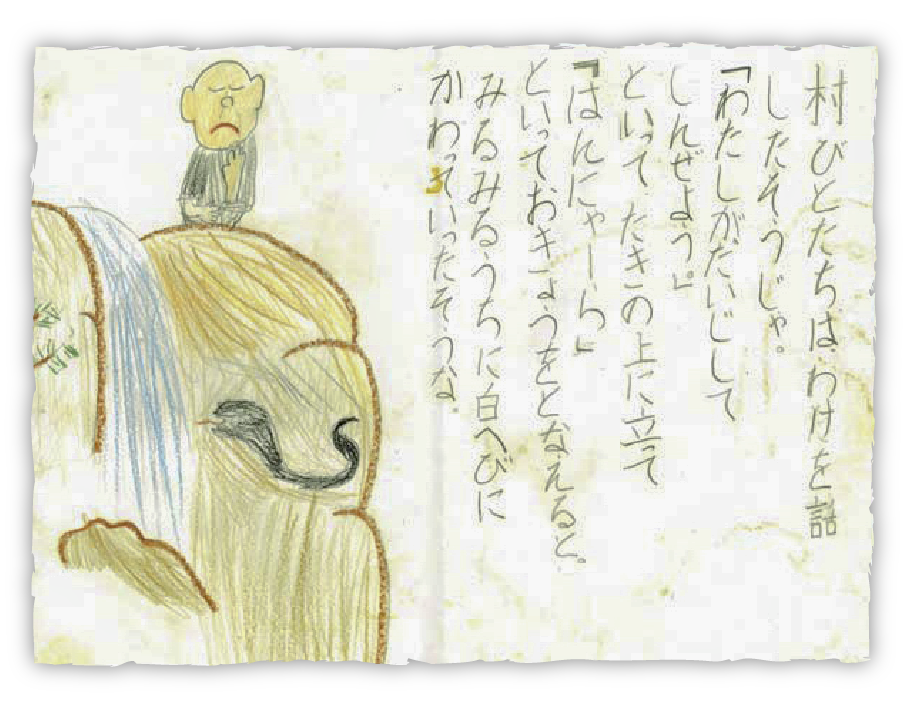 村びとたちは、わけを話
したそうじゃ。
「わたしがたいじして
しんぜよう。」
といって たきの上に立って
「はんにゃーら」
といっておきょうをとなえると。
みるみるうちに白へびに
かわっていったそうな。